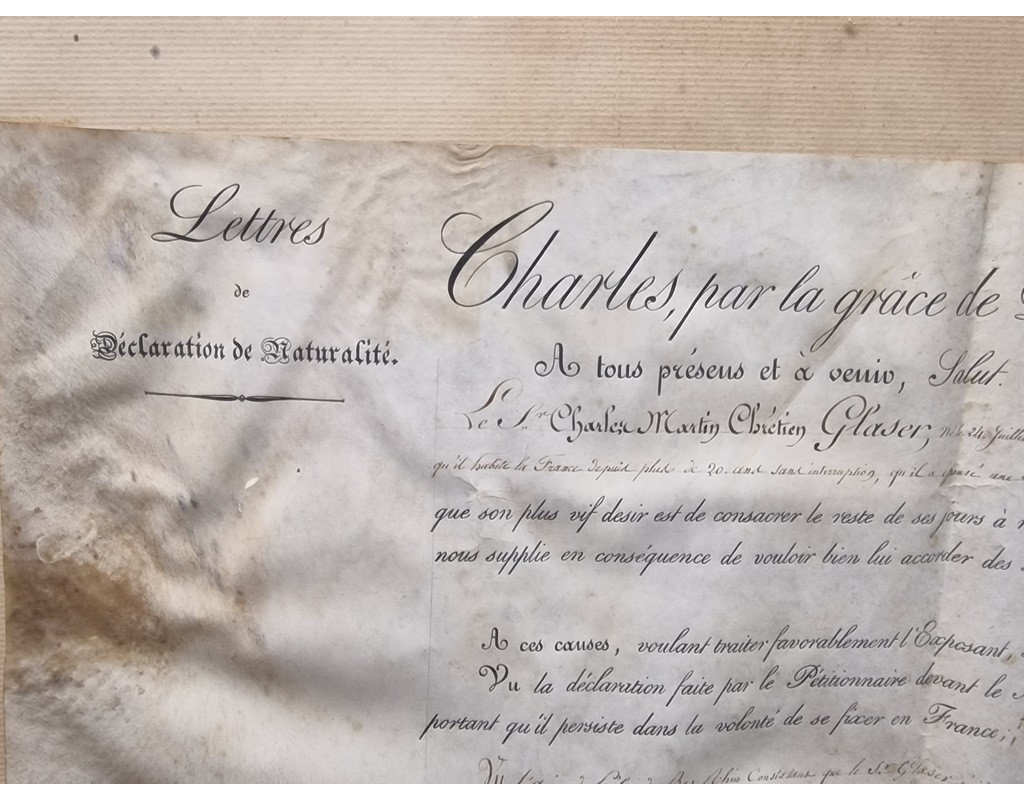 Lettres
de
Déclaration de Naturalité.
Charles, par la grâce de
A tous présens et à venir, Salut.
Le Sr. Charles Martin Chrétien Glaser, né 24 Juillet
qu'il habite la France depuis plus de 20. ans sans interruption, qu'il a épousé une
que son plus vif desir est de consacrer le reste de ses jours à
nous supplie en conséquence de vouloir bien lui accorder des
A ces causes, voulant traiter favorablement l'Exposant,
Vu la déclaration faite par le Pétitionnaire devant le
portant qu'il persiste dans la volonté de se fixer en France;
Vu du Bas Rhin Constatant que le Sr. Glaser